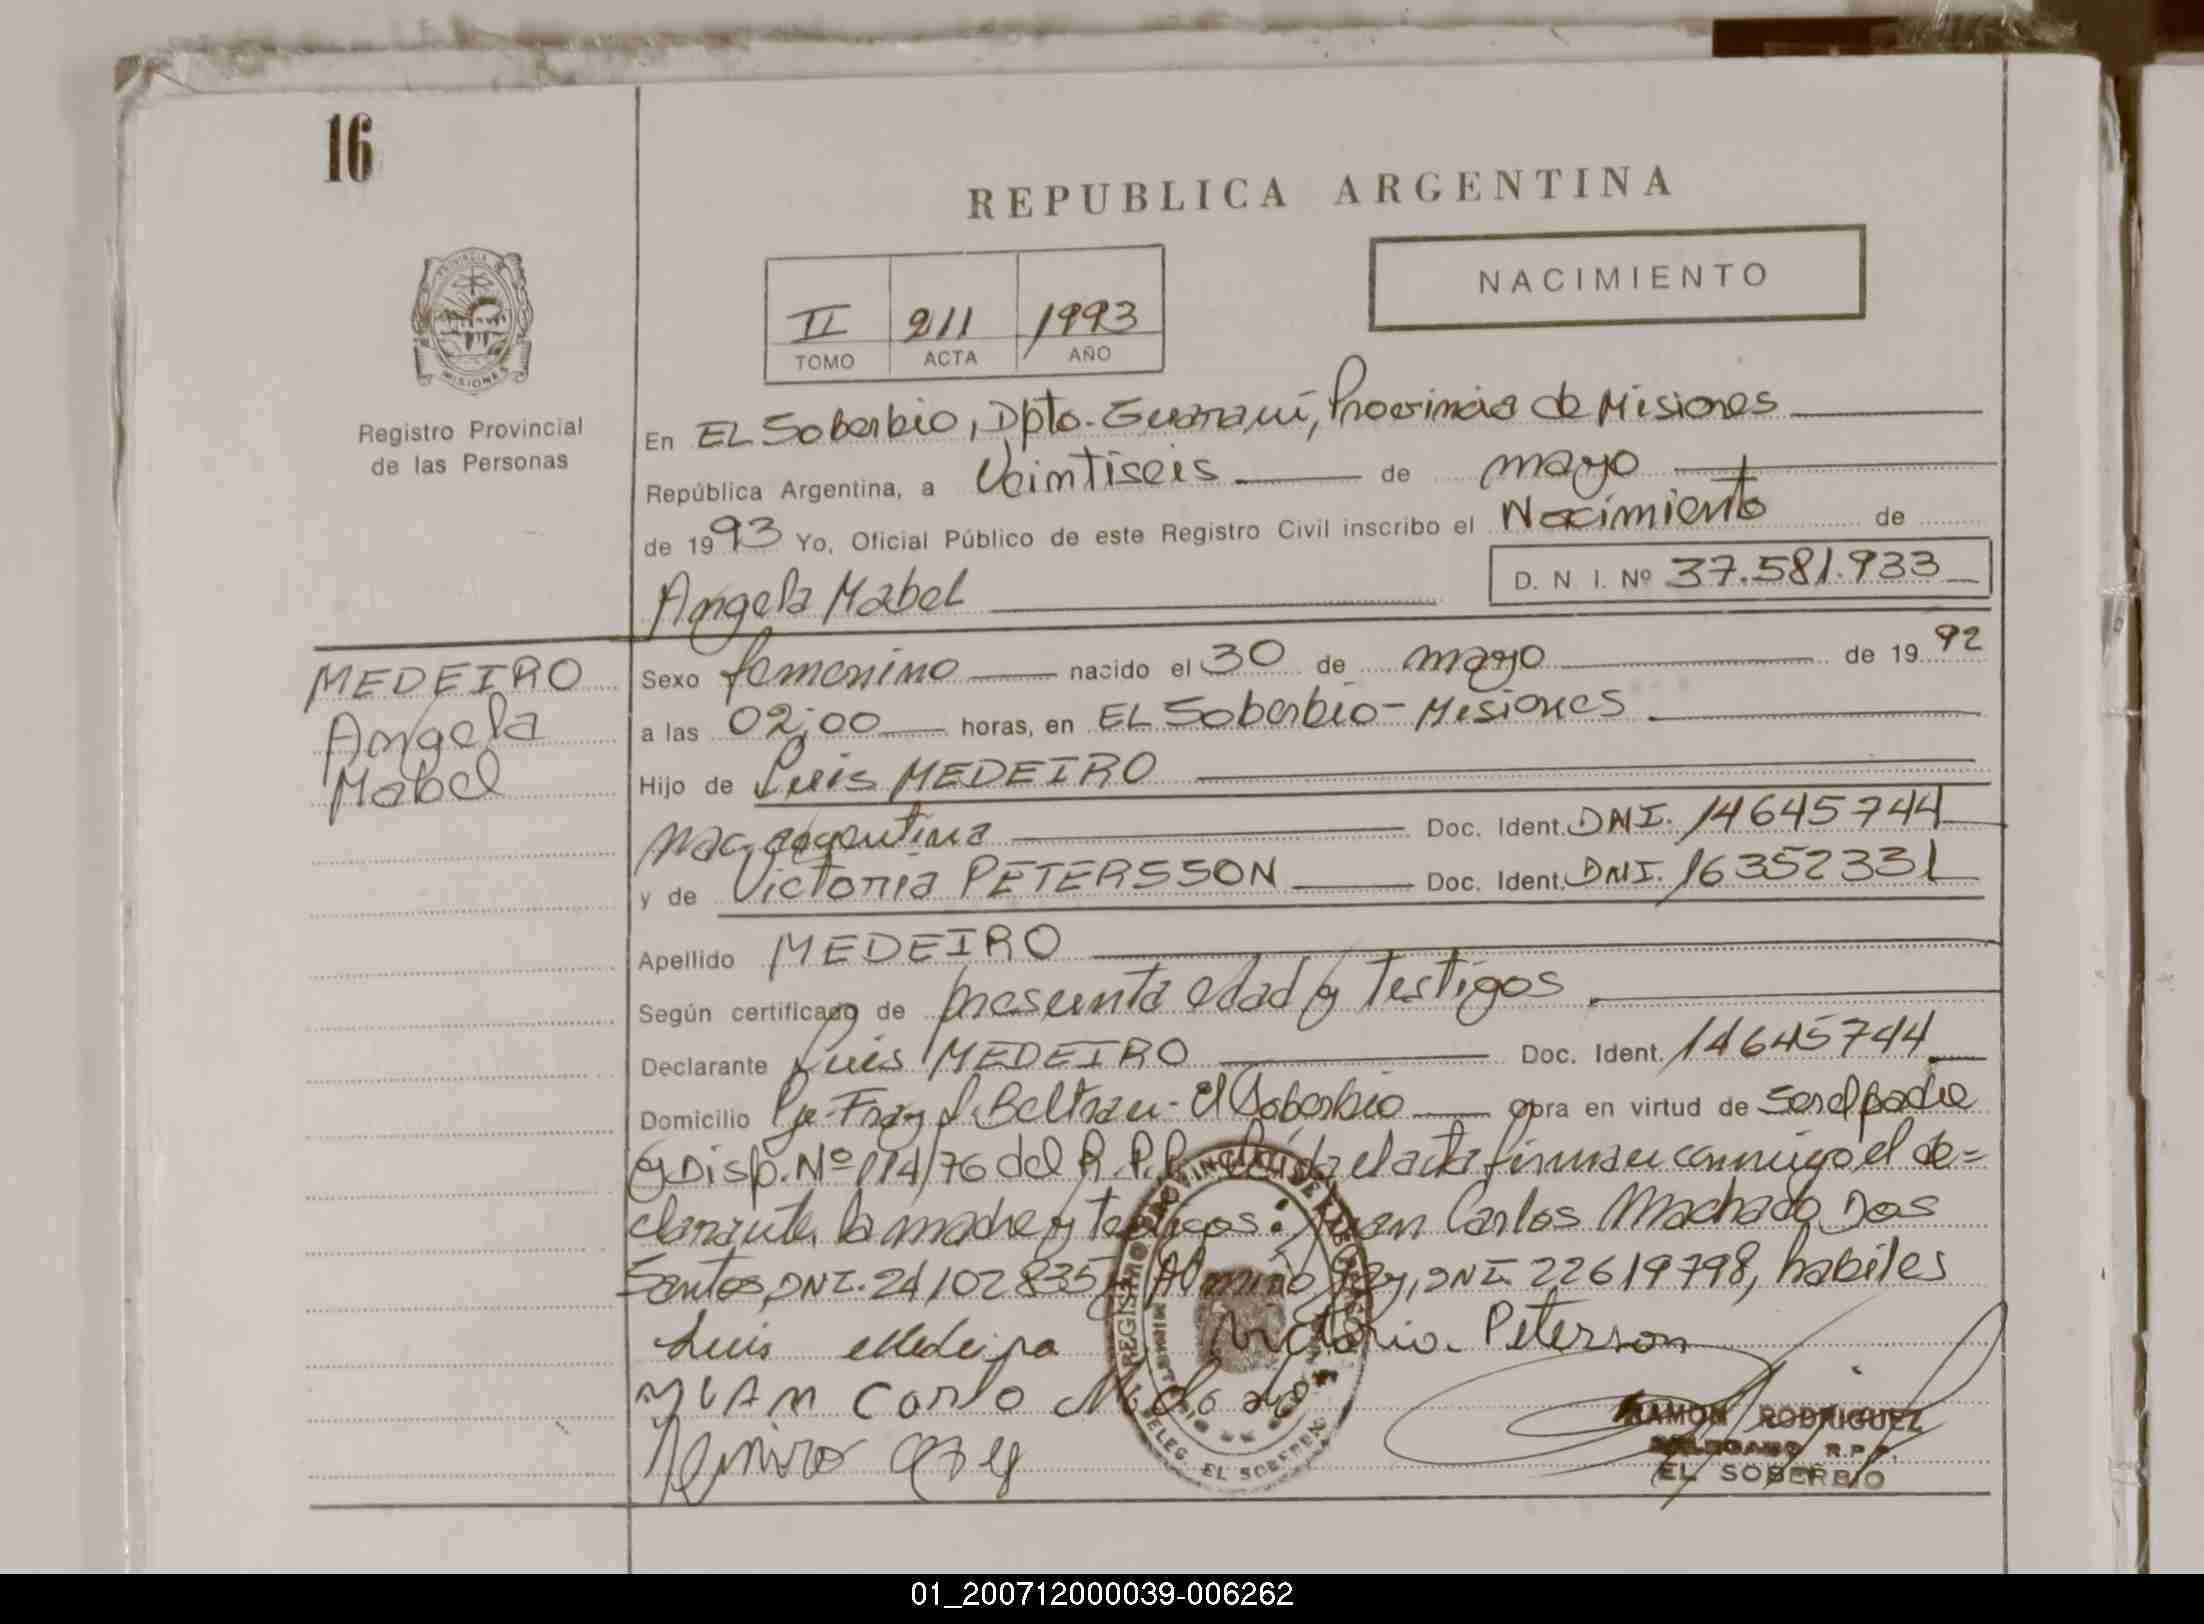 16
REPUBLICA ARGENTINA
NACIMIENTO
II 211 1993
TOMO ACTA AÑO
PROVINCIA DE
MISIONES
Registro Provincial
de las Personas
En EL Soberbio, Dpto. Guaraní, Provincia de Misiones
República Argentina, a Veintiseis de mayo
de 1993 Yo, Oficial Público de este Registro Civil inscribo el Nacimiento de
Angela Mabel D. N. I. Nº 37.581.933
MEDEIRO
Angela
Mabel
Sexo femenino nacido el 30 de mayo de 1992
a las 02:00 horas, en EL Soberbio - Misiones
Hijo de Luis MEDEIRO
Nac. argentina Doc. Ident. DNI. 14645744
y de Victoria PETERSSON Doc. Ident. DNI. 16352331
Apellido MEDEIRO
Según certificado de presunta edad y Testigos
Declarante Luis MEDEIRO Doc. Ident. 14645744
Domicilio Pje. Fray L. Beltran - El Soberbio obra en virtud de ser el padre
y Disp. Nº 114/76 del R.P.P. Leída el acta firman conmigo el de=
clarante, la madre y testigos: Juan Carlos Machado Dos
Santos, DNI. 24102835 y Almiro, DNI. 22619798, habiles
Luis Medeiro Victoria Peterson
JUAN Carlo
Almiro
RAMON RODRIGUEZ
DELEGADO R.P.P.
EL SOBERBIO
DELEG. EL SOBERBIO
01_200712000039-006262